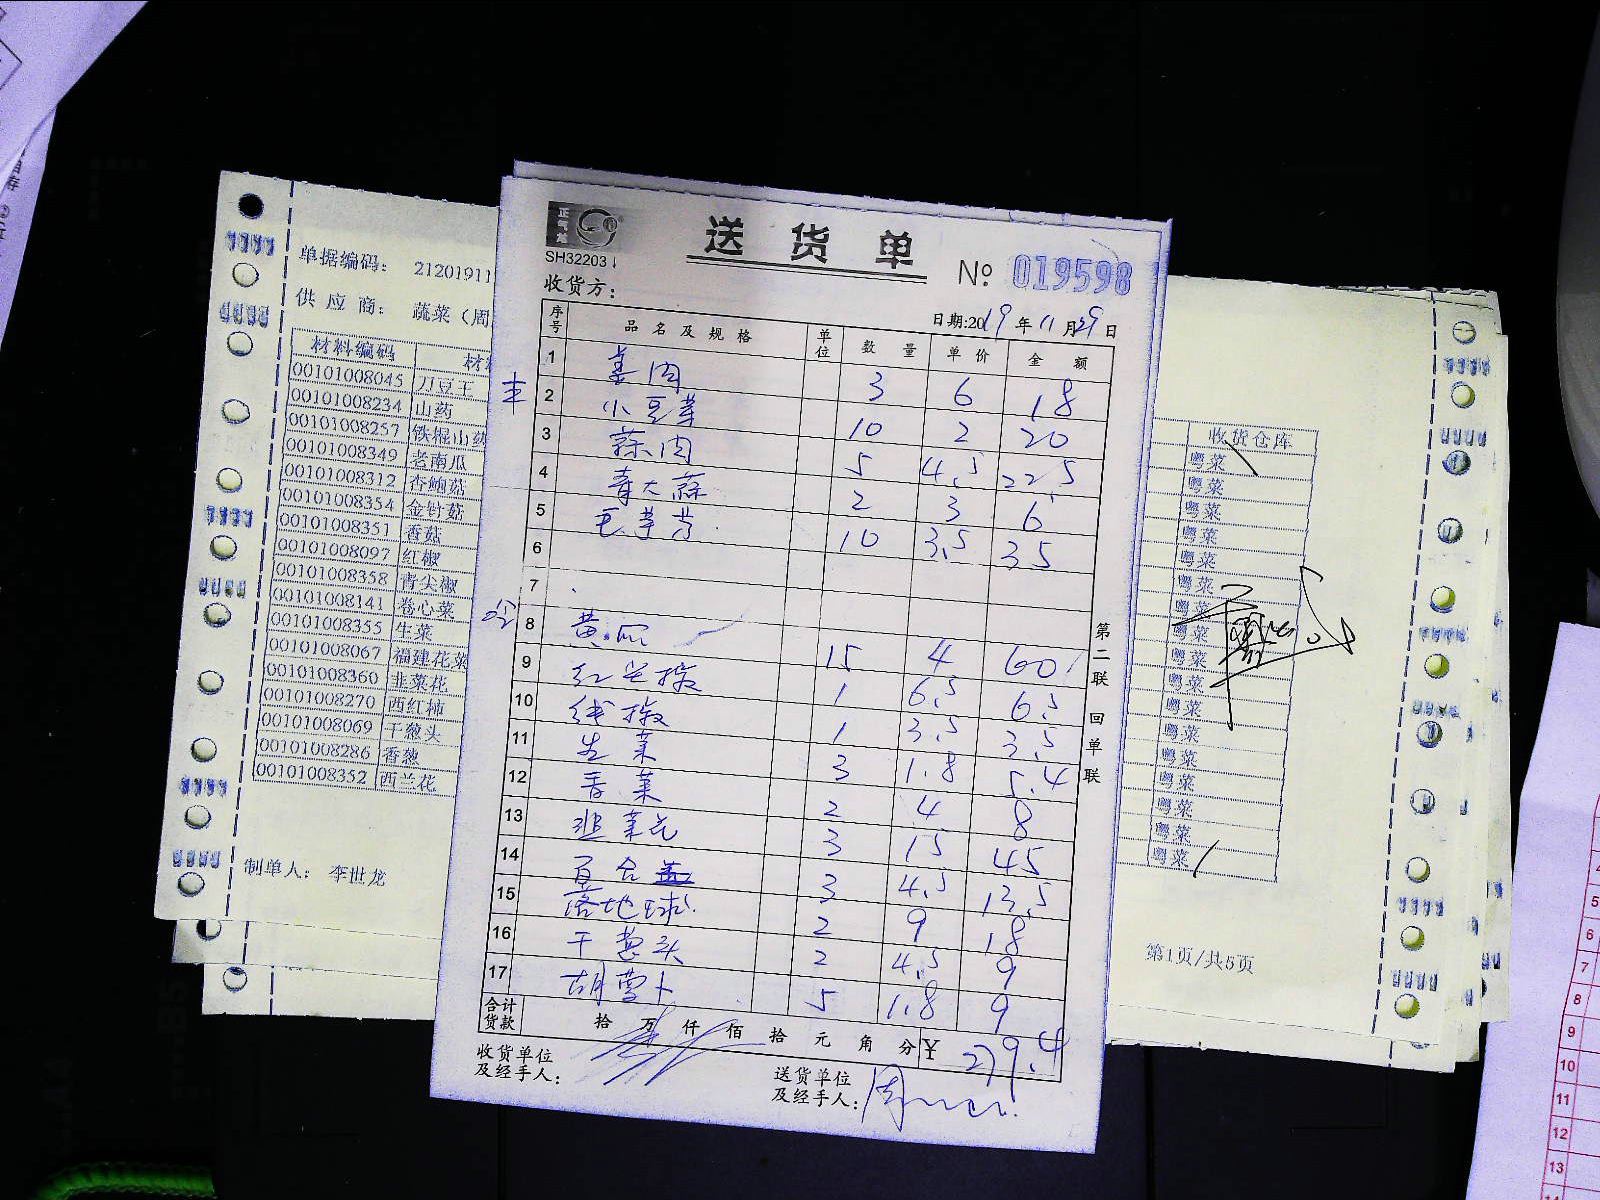 单据编码: 21201911
供 应 商: 蔬菜（周
材料编码 材
00101008045 刀豆王
00101008234 山药
00101008257 铁棍山药
00101008349 老南瓜
00101008312 杏鲍菇
00101008354 金针菇
00101008351 香菇
00101008097 红椒
00101008358 青尖椒
00101008141 卷心菜
00101008355 生菜
00101008067 福建花菜
00101008360 韭菜花
00101008270 西红柿
00101008069 干葱头
00101008286 香葱
00101008352 西兰花
制单人: 李世龙
SH32203
送 货 单
№ 019598
收货方:
日期:2019年11月29日
序号 品名及规格 单位 数量 单价 金额
1 姜肉 3 6 18
2 小豆芽 10 2 20
3 蒜肉 5 4.5 22.5
4 青大蒜 2 3 6
5 毛芋艿 10 3.5 35
6
7
8 黄瓜 15 4 60
9 红尖椒 1 6.5 6.5
10 线椒 1 3.5 3.5
11 生菜 3 1.8 5.4
12 香菜 2 4 8
13 韭菜花 3 15 45
14 百合 3 4.5 13.5
15 落地球 2 9 18
16 干葱头 2 4.5 9
17 胡萝卜 5 1.8 9
合计货款 拾 万 仟 佰 拾 元 角 分 ¥ 279.4
收货单位
及经手人:
送货单位
及经手人: 周
第二联 回单联
收货仓库
粤菜
粤菜
粤菜
粤菜
粤菜
粤菜
粤菜
粤菜
粤菜
粤菜
粤菜
粤菜
粤菜
粤菜
粤菜
粤菜
粤菜
第1页/共5页
5
6
7
8
9
10
11
12
13